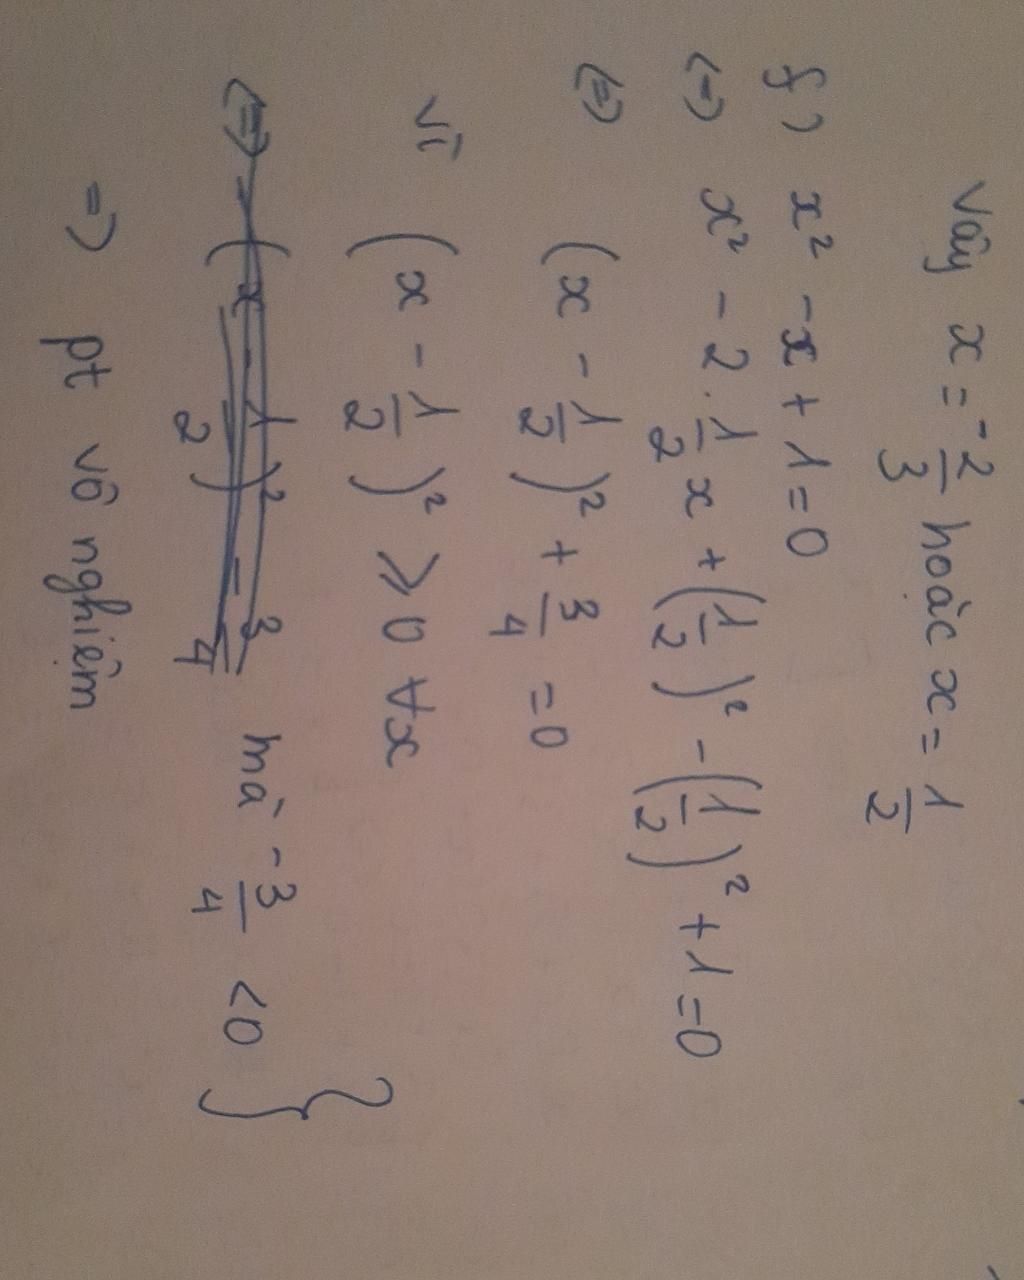 Vậy x = -2/3 hoặc x = 1/2
f) x² - x + 1 = 0
(=) x² - 2 . 1/2 x + (1/2)² - (1/2)² + 1 = 0
(=) (x - 1/2)² + 3/4 = 0
Vì (x - 1/2)² ⩾ 0 ∀x
(=) (x - 1/2)² = 3/4 mà -3/4 < 0 }
=) pt vô nghiệm